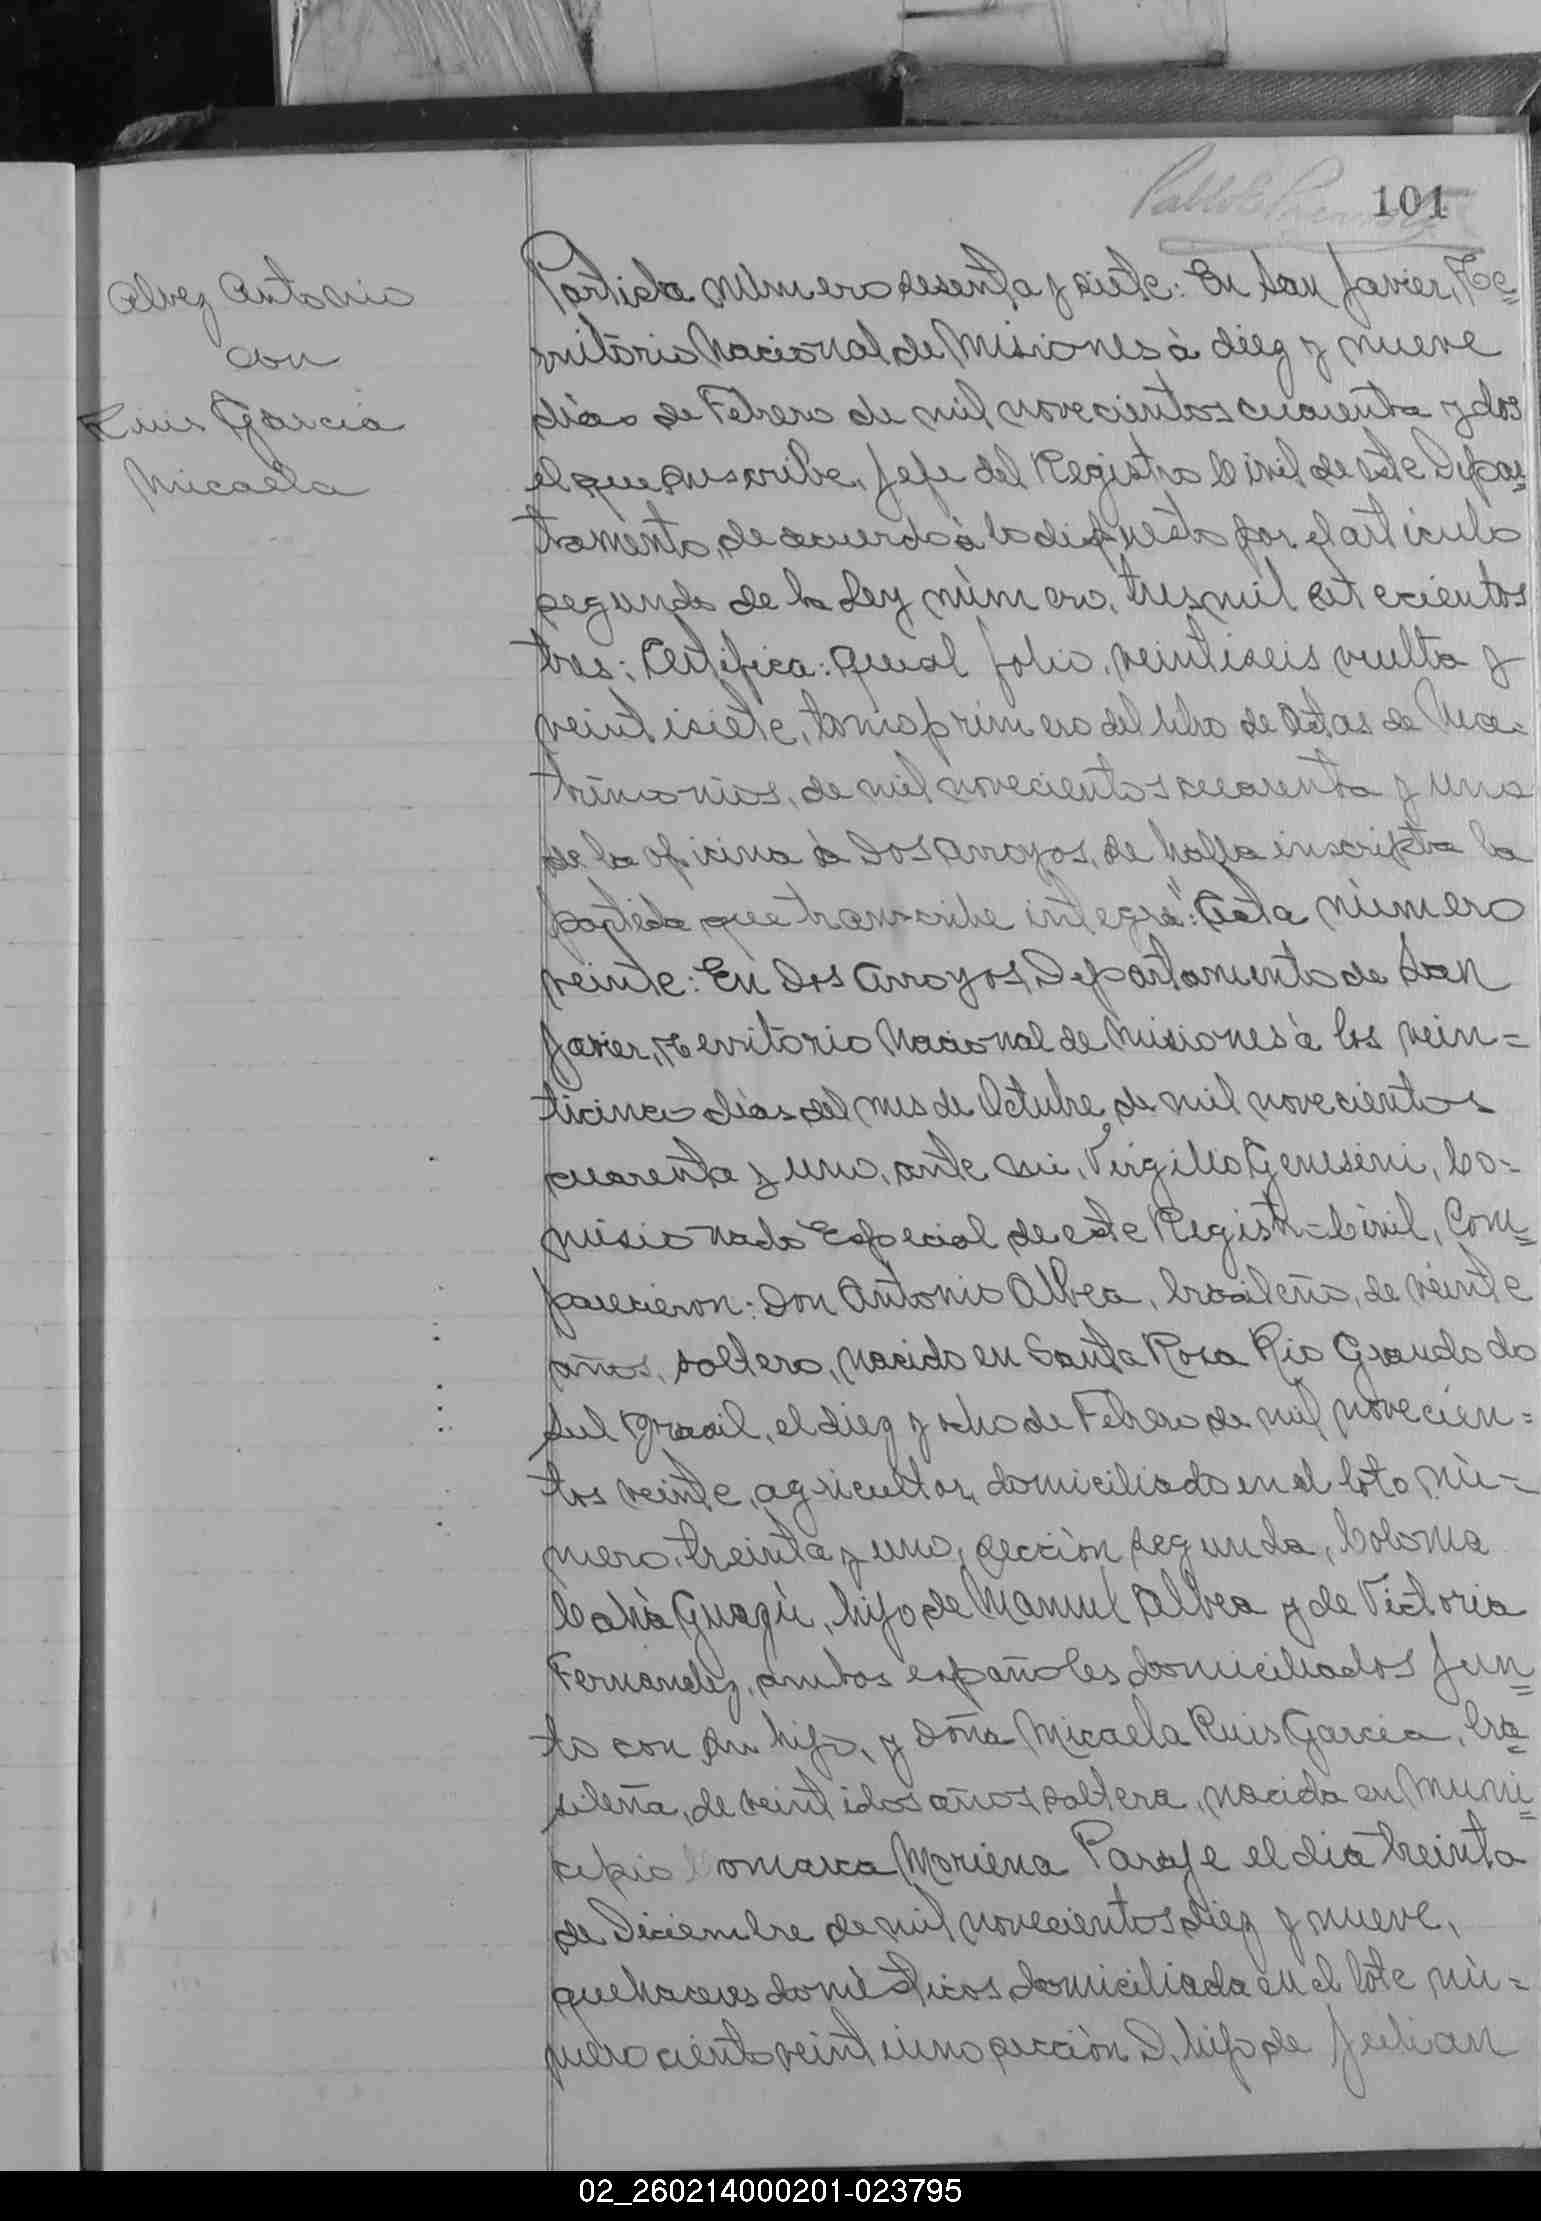 101
Alvez Antonio
con
Ruis Garcia
Micaela
Partida número sesenta y siete: En San Javier, Te=
rritorio Nacional de Misiones à diez y nueve
días de Febrero de mil novecientos cuarenta y dos
el que suscribe, Jefe del Registro Civil de este Depar=
tamento, de acuerdo à lo dispuesto por el articulo
segundo de la Ley nùmero, tres mil setecientos
tres; Certifica: que al folio, veintiseis vuelta y
veintisiete, tomo primero del libro de Actas de Ma=
trimonios, de mil novecientos cuarenta y uno
de la oficina à Dos Arroyos, se halla inscripta la
partida que transcribe integra": Acta nùmero
veinte: En Dos Arroyos, Departamento de San
Javier, Territorio Nacional de Misiones à los vein=
ticinco dias del mes de Octubre de mil novecientos
cuarenta y uno, ante mi, Virgilio Genesini, Co=
misionado Especial de este Registro Civil, Com=
parecieron: Don Antonio Albea, brasileño, de veinte
años, soltero, nacido en Santa Rosa Rio Grando do
Sul Brasil, el diez y ocho de Febrero de mil novecien=
tos veinte, agricultor, domiciliado en el loto nù=
mero, treinta y uno, sección segunda, Colonia
Cahà Guazù, hijo de Manuel Albea y de Victoria
Fernandez, ambos españoles domiciliados jun=
to con su hijo, y Doña Micaela Ruis Garcia, bra=
sileña, de veintidos años soltera, nacida en Muni=
cipio Comarca Moriena Paraje el dia treinta
de Diciembre de mil novecientos diez y nueve,
quehaceres domèsticos domiciliada en el lote nù=
mero ciento veintiuno sección D, hija de Julian
02_260214000201-023795